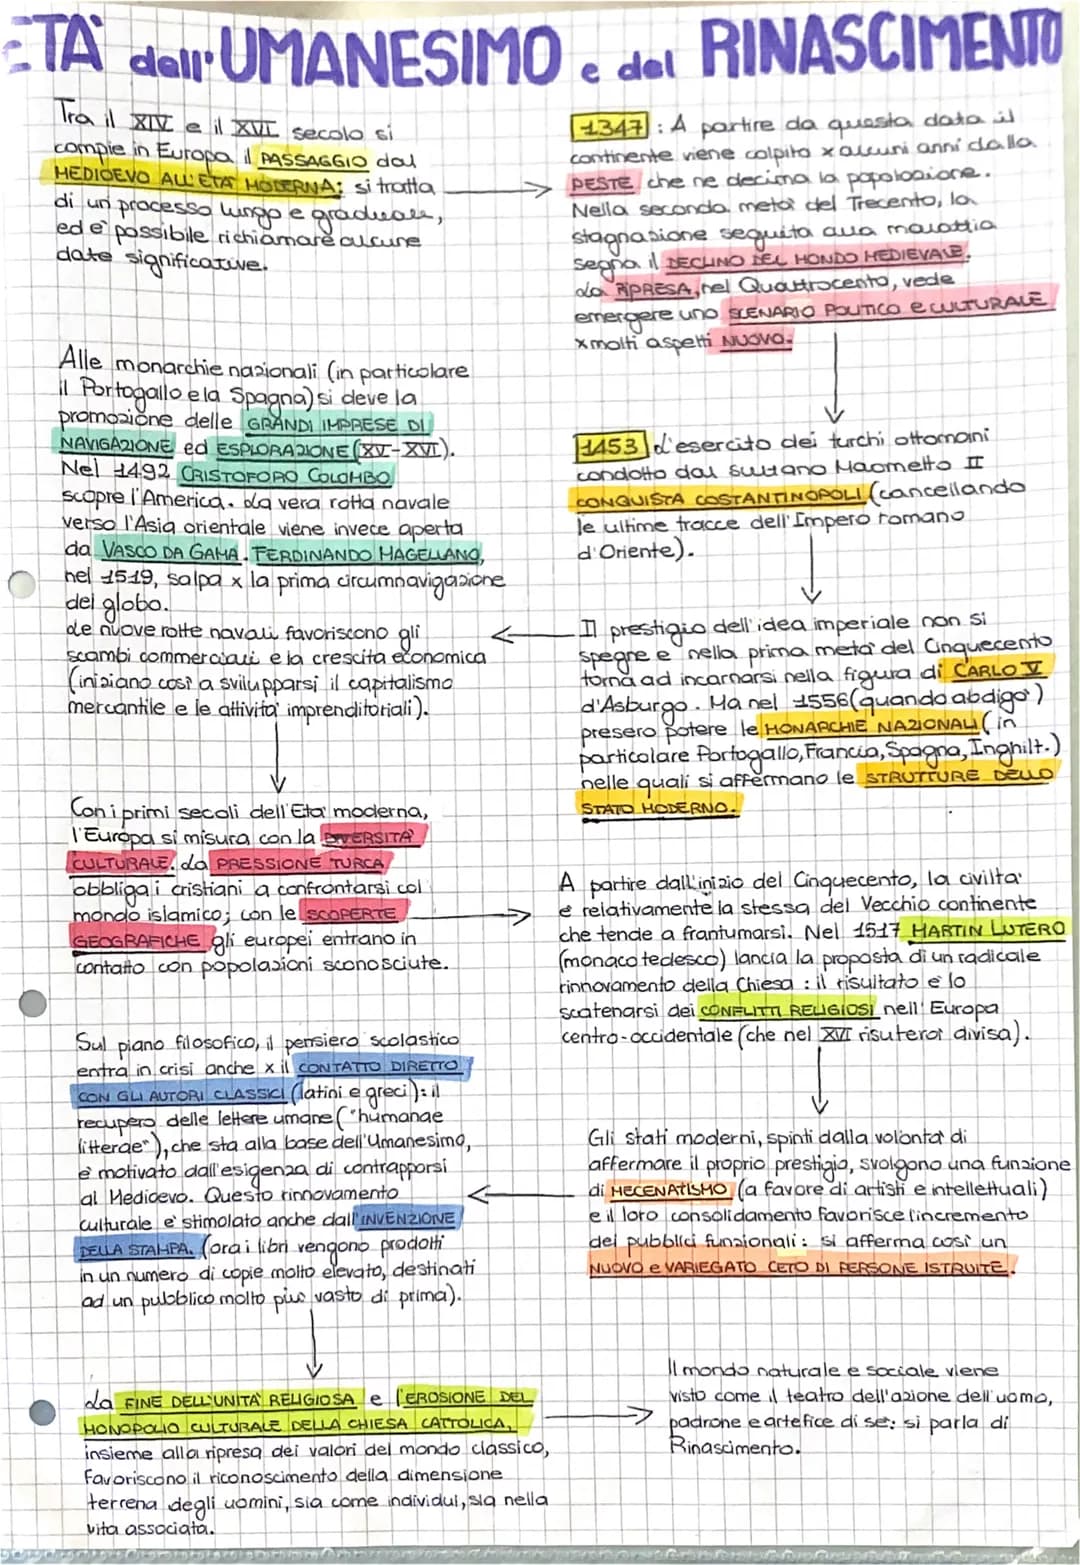 ETÀ dell'UMANESIMO e del RINASCIMENTO
Tra il XIV e il XVI secolo si
compie in Europa il PASSAGGIO dal
MEDIOEVO ALL'ETÀ MODERNA: si tratta
di un processo lungo e graduale,
ed è possibile richiamare alcune
date significative.
1347: A partire da questa data il
continente viene colpito x alcuni anni dalla
PESTE che ne decima la popolazione.
Nella seconda metà del Trecento, la
stagnazione seguita alla malattia
segna il DECLINO DEL MONDO MEDIEVALE.
La RIPRESA, nel Quattrocento, vede
emergere uno SCENARIO POLITICO e CULTURALE
x molti aspetti NUOVO.
1453 L'esercito dei turchi ottomani
condotto dal sultano Maometto II
CONQUISTA COSTANTINOPOLI (cancellando
le ultime tracce dell'Impero romano
d'Oriente).
Il prestigio dell'idea imperiale non si
spegne e nella prima metà del Cinquecento
torna ad incarnarsi nella figura di CARLO V
d'Asburgo. Ma nel 1556 (quando abdigò)
presero potere le MONARCHIE NAZIONALI (in
particolare Portogallo, Francia, Spagna, Inghilt.)
nelle quali si affermano le STRUTTURE DELLO
STATO MODERNO.
Alle monarchie nazionali (in particolare
il Portogallo e la Spagna) si deve la
promozione delle GRANDI IMPRESE DI
NAVIGAZIONE ed ESPLORAZIONE (XV-XVI).
Nel 1492 CRISTOFORO COLOMBO
scopre l'America. La vera rotta navale
verso l'Asia orientale viene invece aperta
da VASCO DA GAMA. FERDINANDO MAGELLANO,
nel 1519, salpa x la prima circumnavigazione
del globo.
Le nuove rotte navali favoriscono gli
scambi commerciali e la crescita economica
(iniziano così a svilupparsi il capitalismo
mercantile e le attività imprenditoriali).
Con i primi secoli dell'Età moderna,
l'Europa si misura con la DIVERSITÀ
CULTURALE. La PRESSIONE TURCA
obbliga i cristiani a confrontarsi col
mondo islamico; con le SCOPERTE
GEOGRAFICHE gli europei entrano in
contatto con popolazioni sconosciute.
A partire dall'inizio del Cinquecento, la civiltà
è relativamente la stessa del Vecchio continente
che tende a frantumarsi. Nel 1517 MARTIN LUTERO
(monaco tedesco) lancia la proposta di un radicale
rinnovamento della Chiesa: il risultato è lo
scatenarsi dei CONFLITTI RELIGIOSI nell'Europa
centro-occidentale (che nel XVI risulterà divisa).
Gli stati moderni, spinti dalla volontà di
affermare il proprio prestigio, svolgono una funzione
di MECENATISMO (a favore di artisti e intellettuali)
e il loro consolidamento favorisce l'incremento
dei pubblici funzionali: si afferma così un
NUOVO e VARIEGATO CETO DI PERSONE ISTRUITE.
Sul piano filosofico, il pensiero scolastico
entra in crisi anche x il CONTATTO DIRETTO
CON GLI AUTORI CLASSICI (latini e greci): il
recupero delle lettere umane ("humanae
litterae"), che sta alla base dell'Umanesimo,
è motivato dall'esigenza di contrapporsi
al Medioevo. Questo rinnovamento
culturale è stimolato anche dall'INVENZIONE
DELLA STAMPA. (ora i libri vengono prodotti
in un numero di copie molto elevato, destinati
ad un pubblico molto più vasto di prima).
La FINE DELL'UNITÀ RELIGIOSA e l'EROSIONE DEL
MONOPOLIO CULTURALE DELLA CHIESA CATTOLICA,
insieme alla ripresa dei valori del mondo classico,
favoriscono il riconoscimento della dimensione
terrena degli uomini, sia come individui, sia nella
vita associata.
Il mondo naturale e sociale viene
visto come il teatro dell'azione dell'uomo,
padrone e artefice di sé: si parla di
Rinascimento.